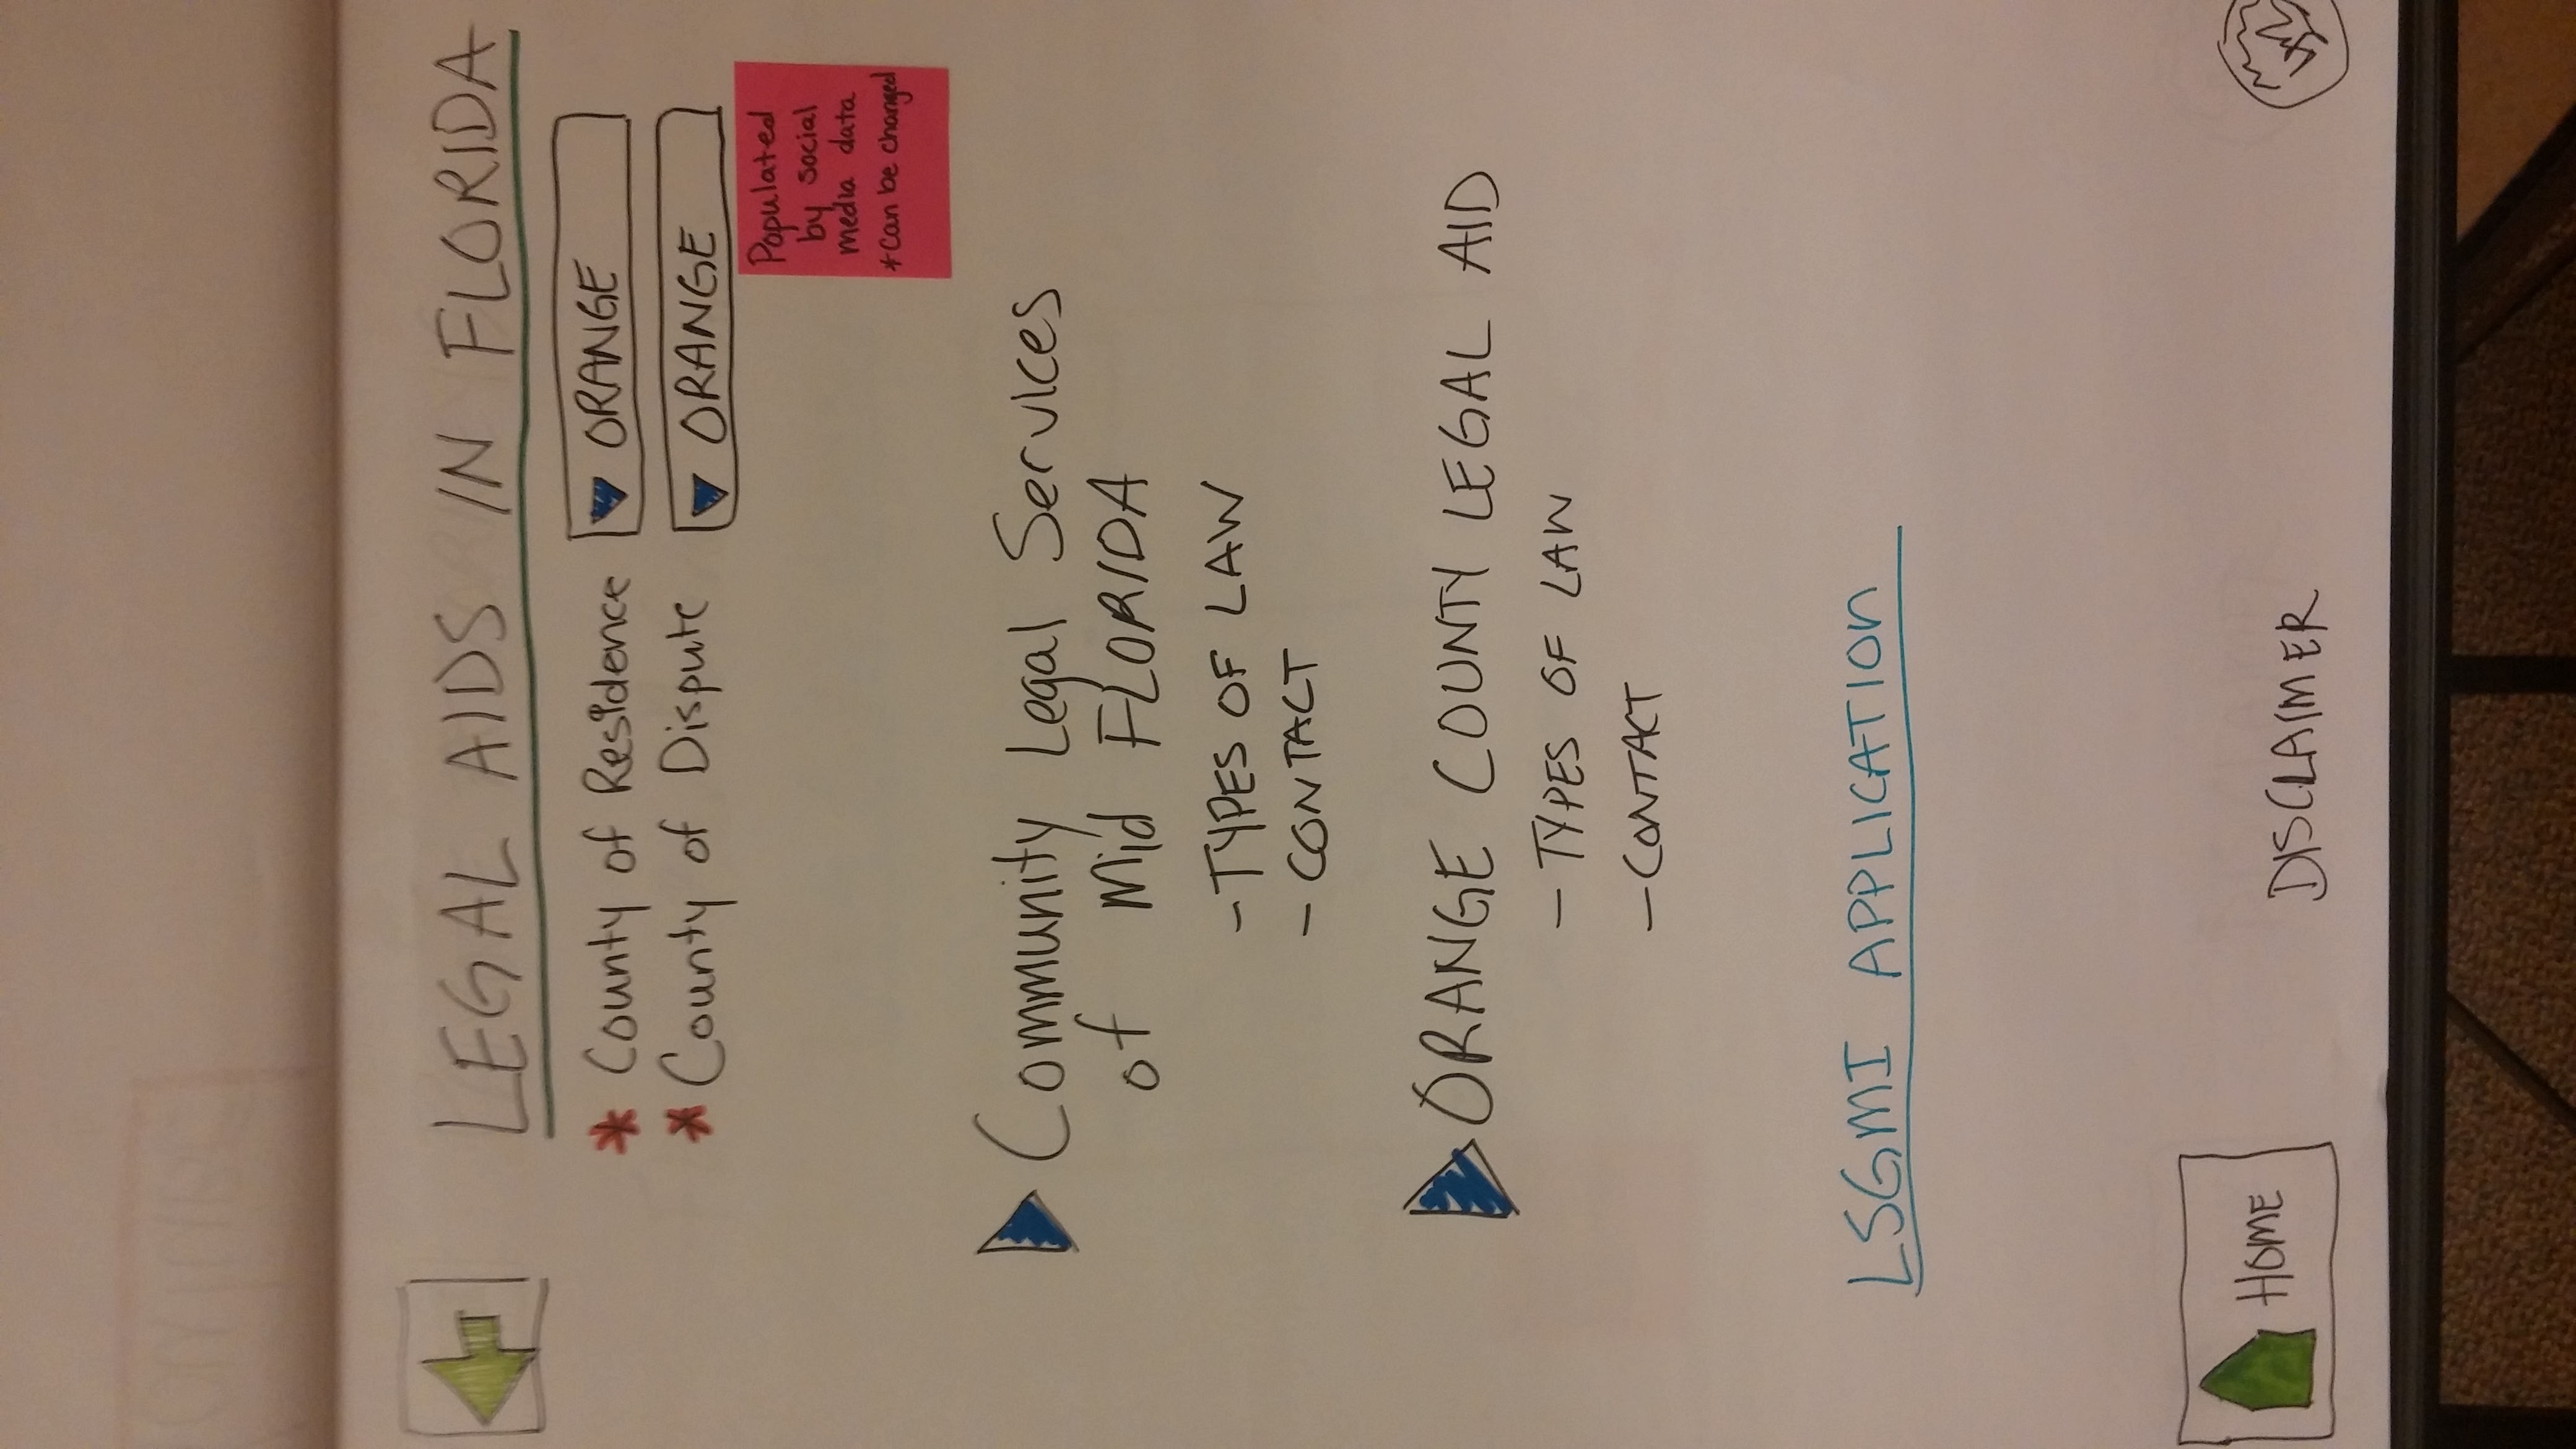 LEGAL AIDS IN FLORIDA
* County of Residence ORANGE
* County of Dispute ORANGE
Populated
by social
media data
*Can be changed
Community Legal Services
of Mid FLORIDA
- TYPES OF LAW
- CONTACT
ORANGE COUNTY LEGAL AID
- TYPES OF LAW
- CONTACT
LSGMI APPLICATION
HOME
DISCLAIMER